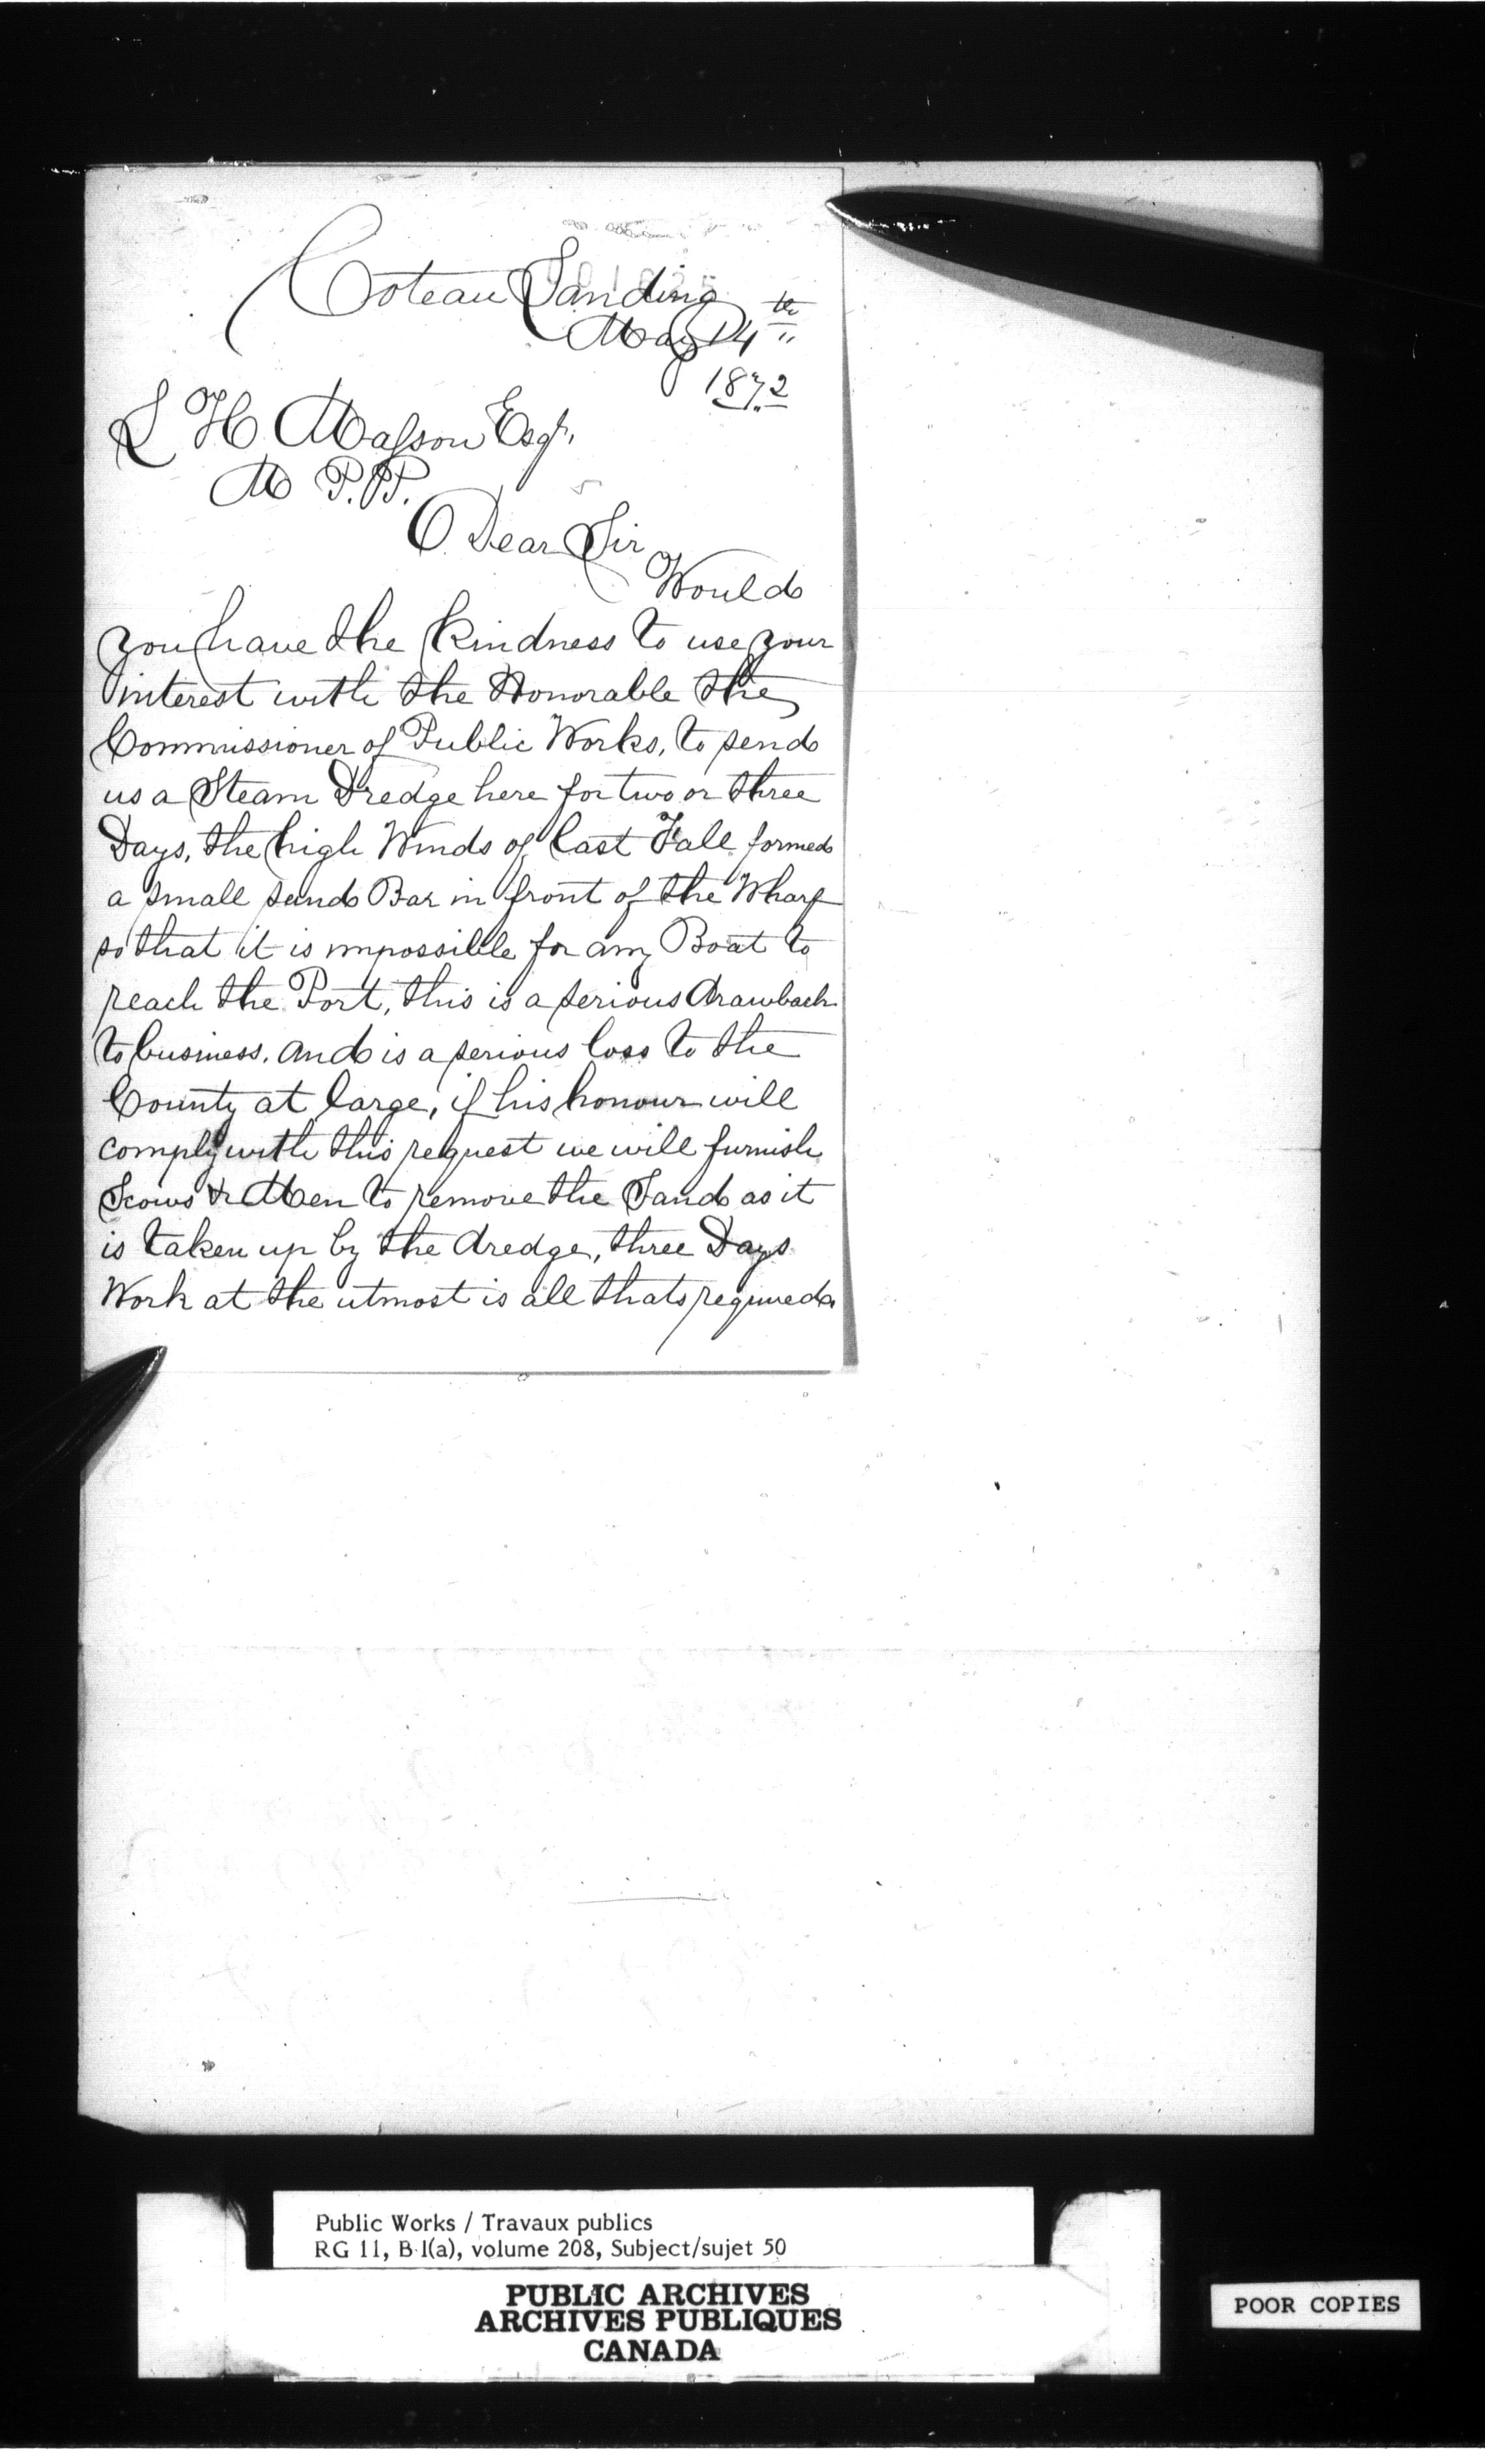 Coteau Landing
May 14th
1872
L H Masson Esqr.
M P.P.
Dear Sir
Would
you have the kindness to use your
interest with the Honorable the
Commissioner of Public Works, to send
us a Steam Dredge here for two or three
Days, the high Winds of last Fall formed
a small sand Bar in front of the Wharf
so that it is impossible for any Boat to
reach the Port, this is a serious drawback
to business. and is a serious loss to the
County at large, if his honour will
comply with this request we will furnish
Scows & Men to remove the Sand as it
is taken up by the dredge, three Days
Work at the utmost is all thats required
Public Works / Travaux publics
RG 11, B 1(a), volume 208, Subject/sujet 50
PUBLIC ARCHIVES
ARCHIVES PUBLIQUES
CANADA
POOR COPIES